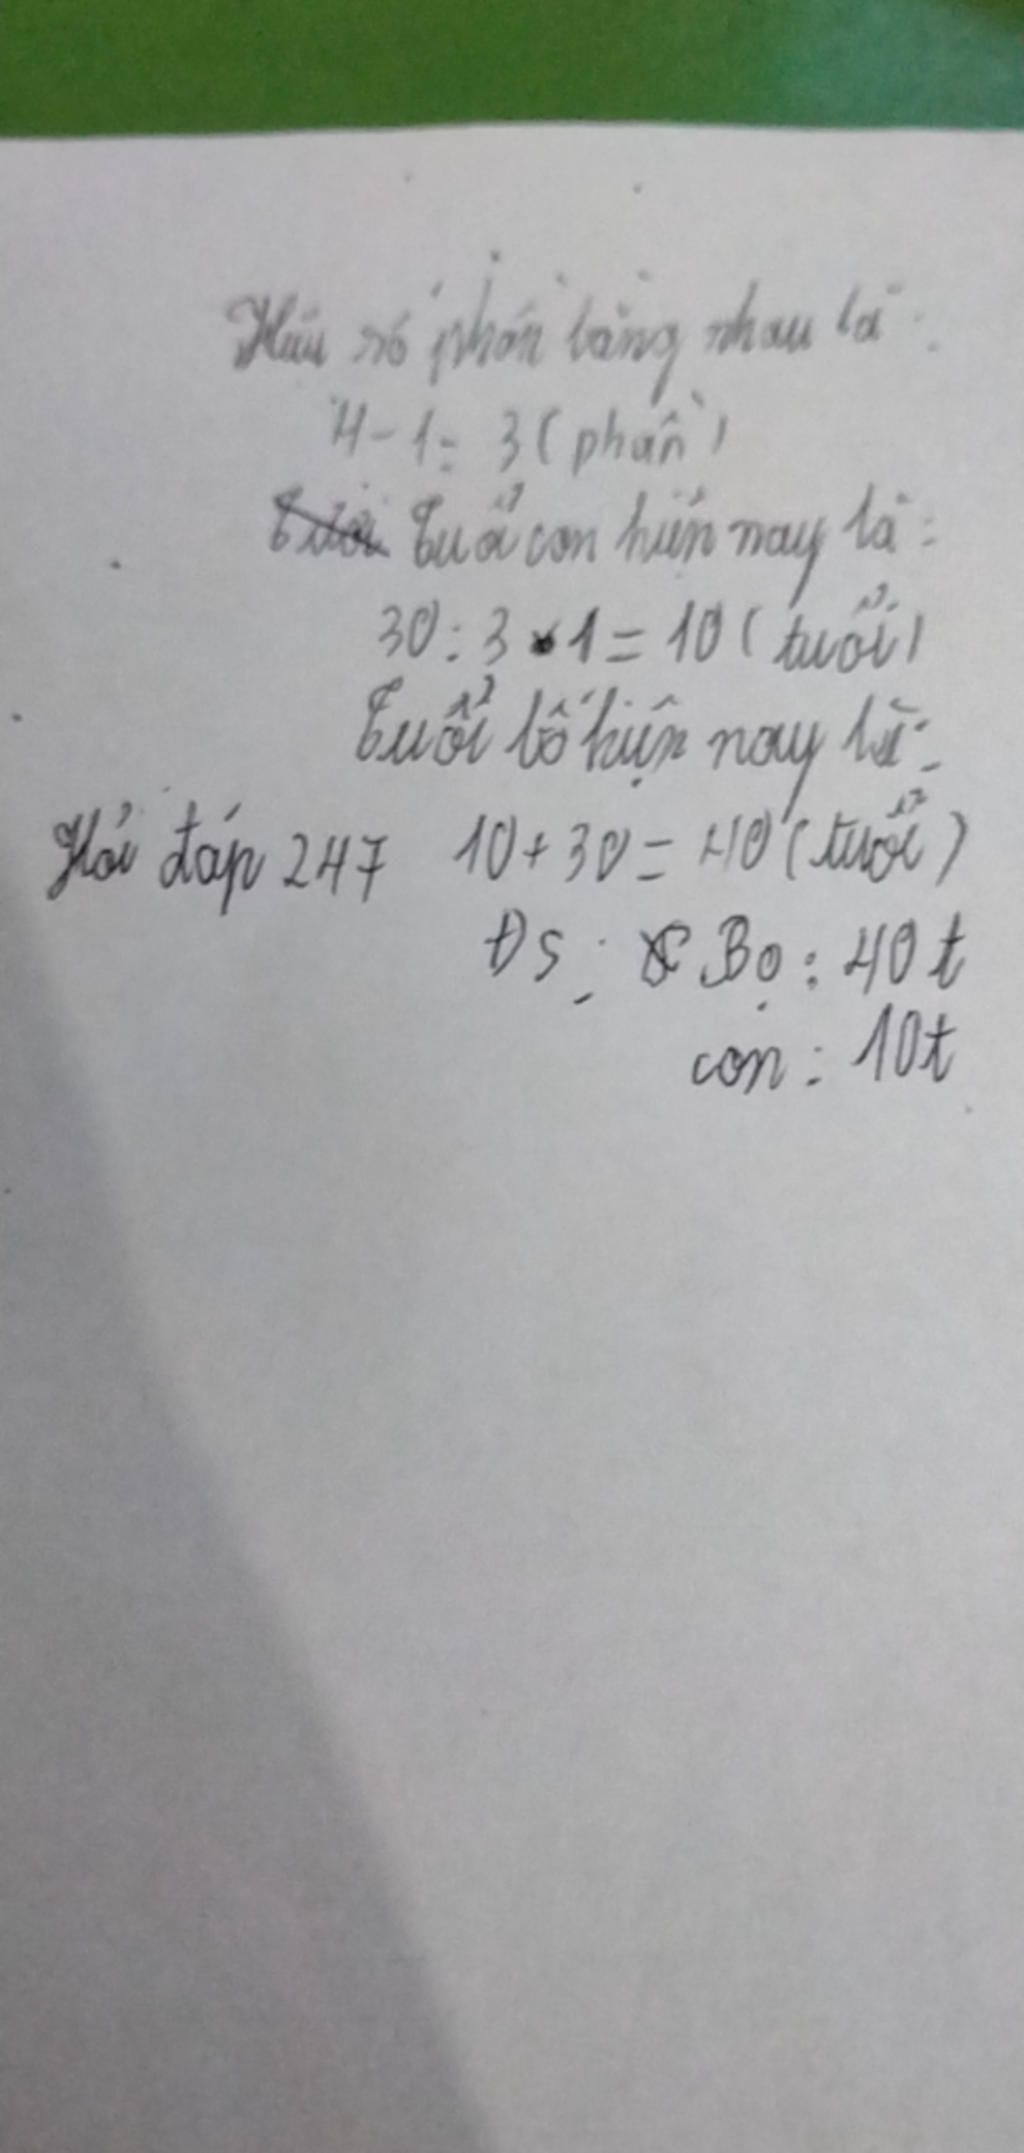 Hiệu số phần bằng nhau là:
4 - 1 = 3 (phần)
Tuổi con hiện nay là:
30 : 3 x 1 = 10 (tuổi)
Tuổi bố hiện nay là:
Hỏi đáp 247 10 + 30 = 40 (tuổi)
ĐS: Bọ: 40 t
con: 10t